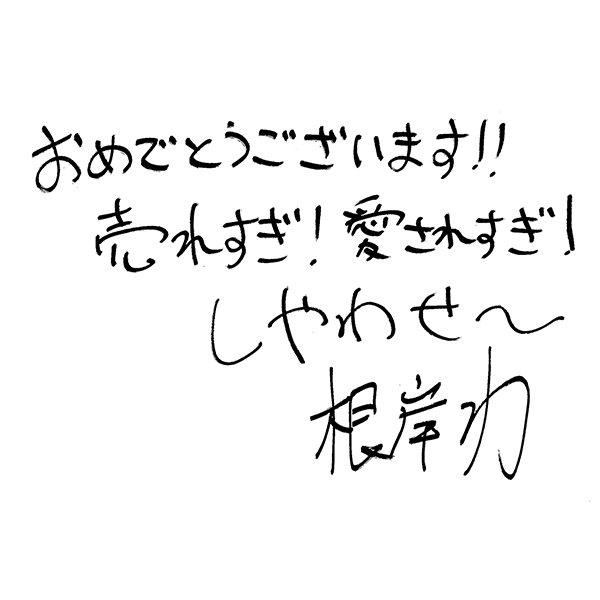 おめでとうございます!!
売れすぎ!愛されすぎ!
しやわせ〜
根岸